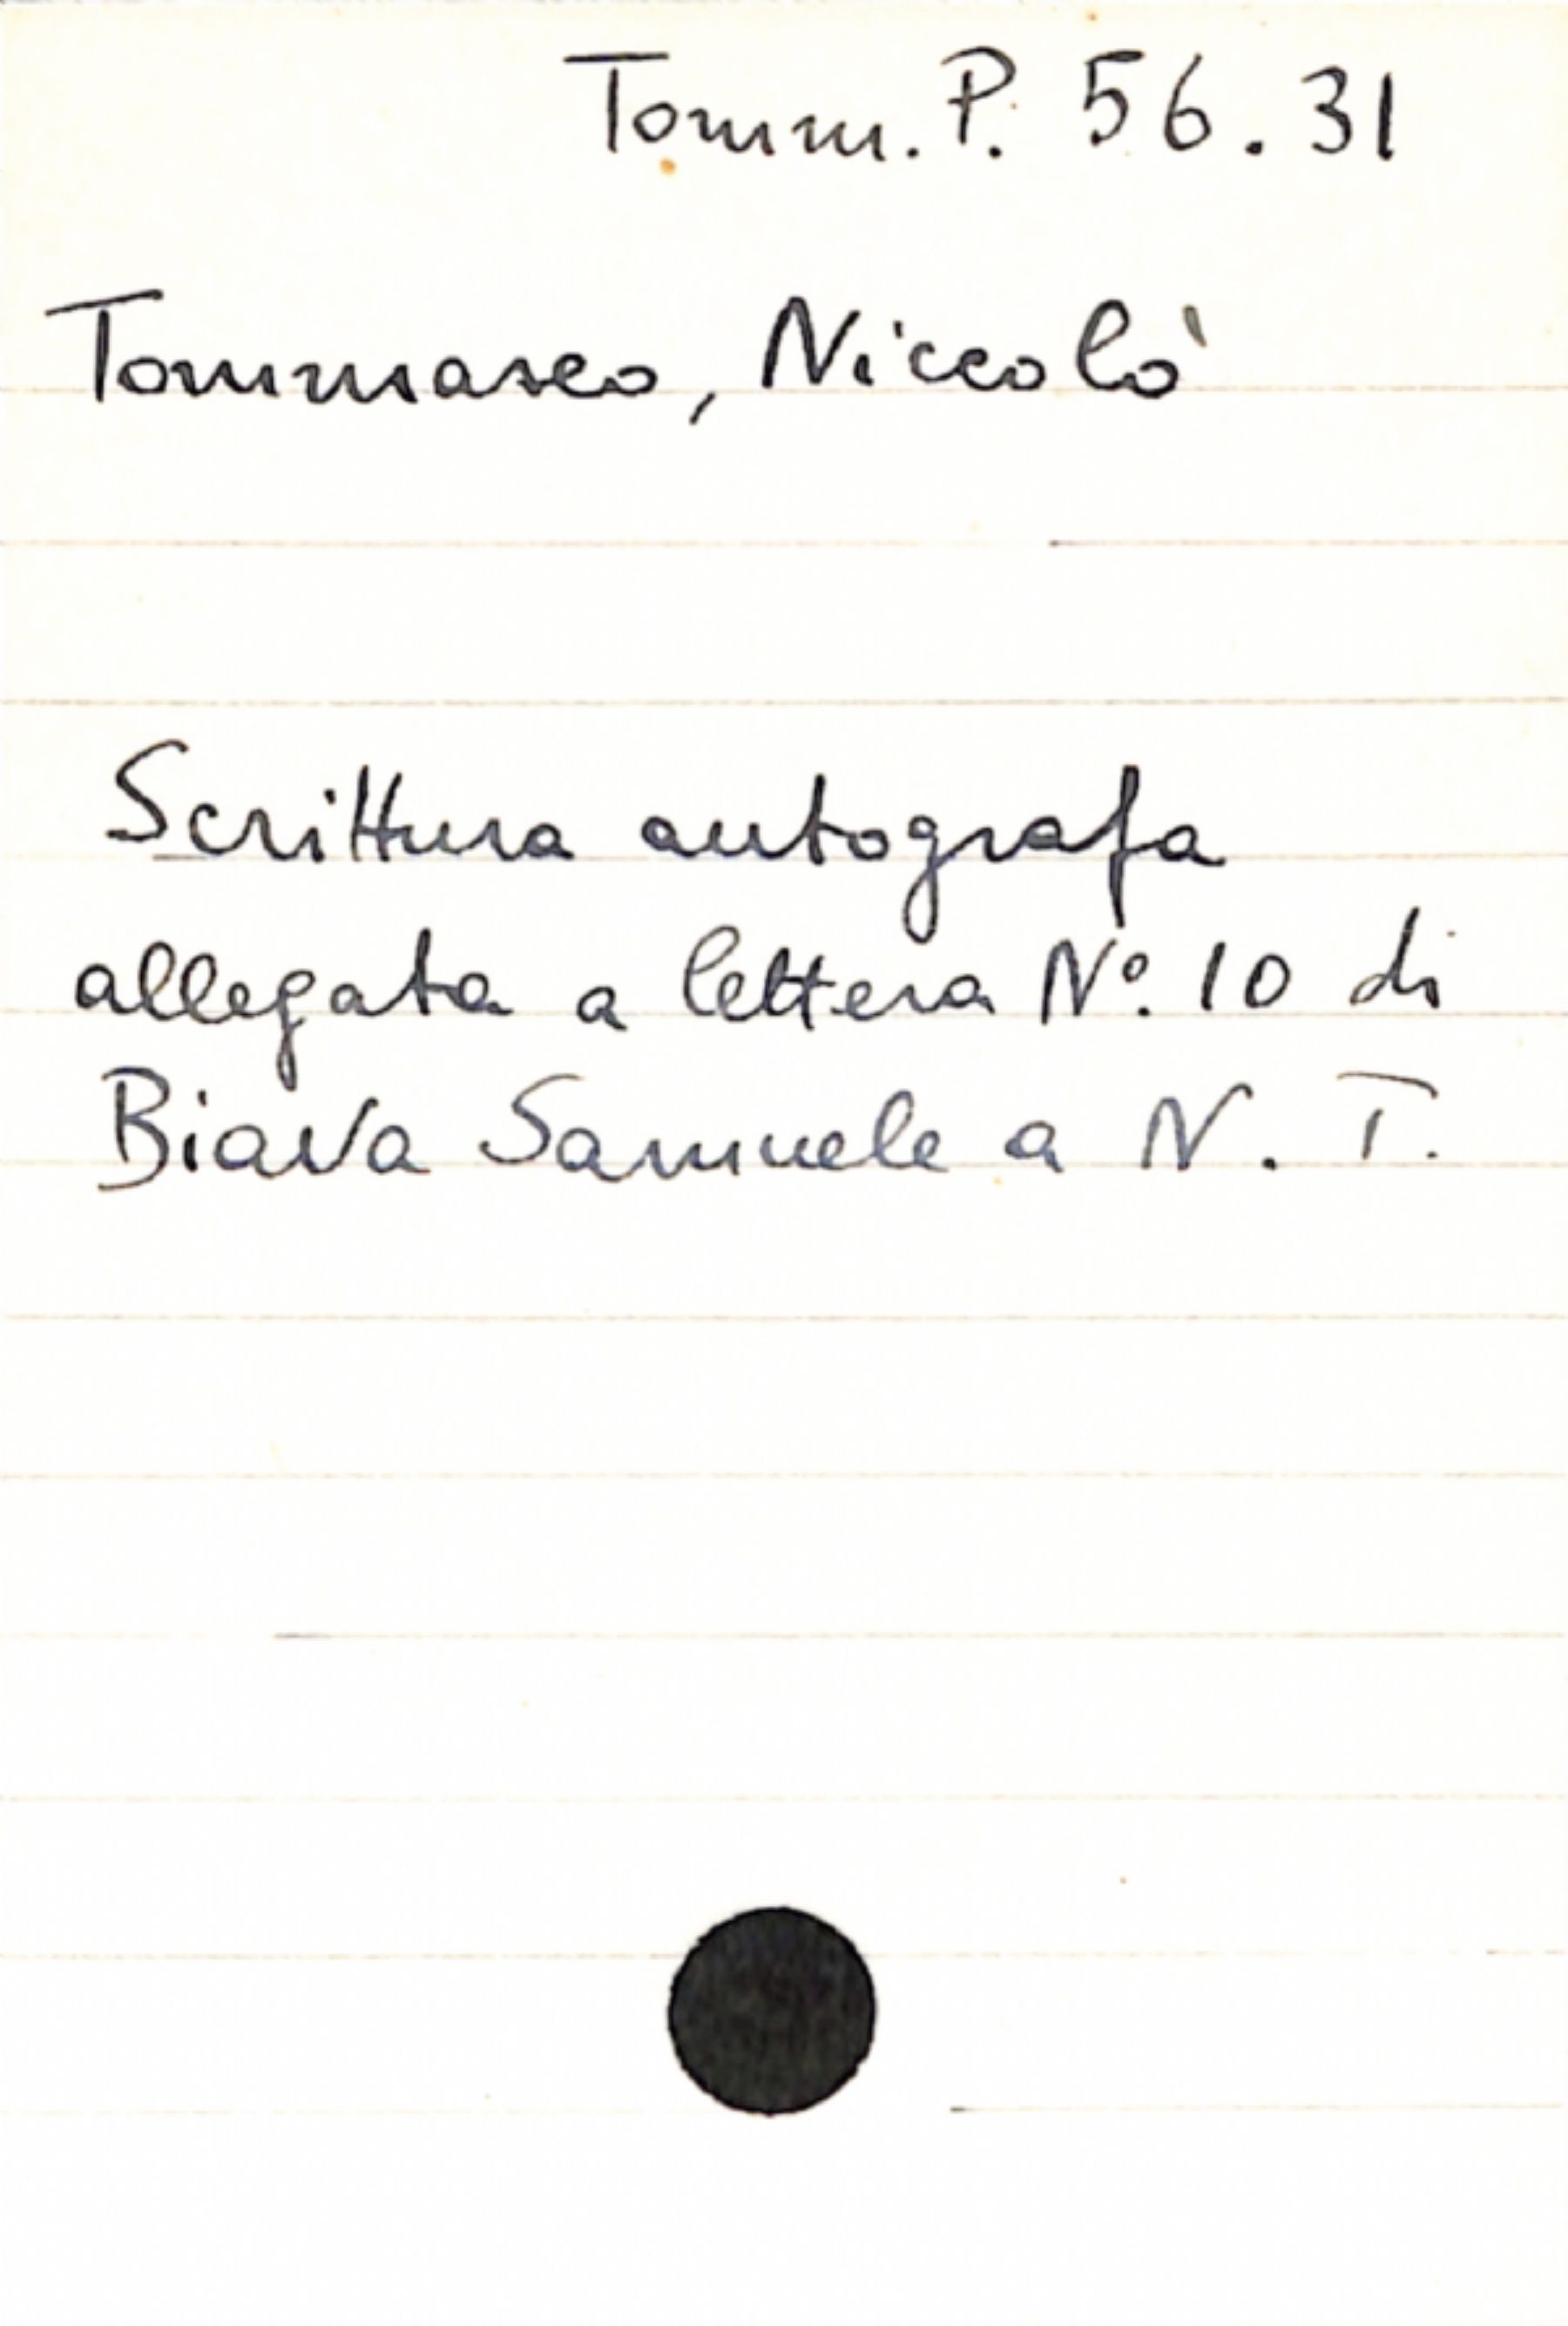 Tomm. P. 56.31
Tommaseo, Niccolò
Scrittura autografa
allegata a lettera Nº. 10 di
Biava Samuele a N. T.